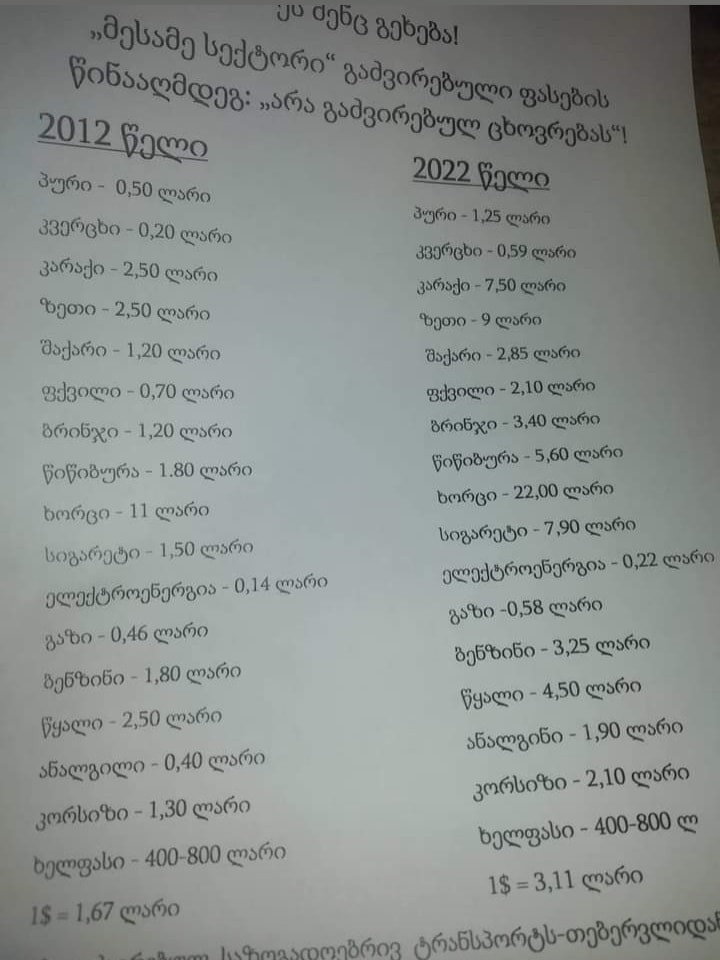 ეს შენც გეხება!
„მესამე სექტორი“ გაძვირებული ფასების
წინააღმდეგ: „არა გაძვირებულ ცხოვრებას“!
2012 წელი
პური - 0,50 ლარი
კვერცხი - 0,20 ლარი
კარაქი - 2,50 ლარი
ზეთი - 2,50 ლარი
შაქარი - 1,20 ლარი
ფქვილი - 0,70 ლარი
ბრინჯი - 1,20 ლარი
წიწიბურა - 1.80 ლარი
ხორცი - 11 ლარი
სიგარეტი - 1,50 ლარი
ელექტროენერგია - 0,14 ლარი
გაზი - 0,46 ლარი
ბენზინი - 1,80 ლარი
წყალი - 2,50 ლარი
ანალგილი - 0,40 ლარი
კორსიზი - 1,30 ლარი
ხელფასი - 400-800 ლარი
1$ = 1,67 ლარი
2022 წელი
პური - 1,25 ლარი
კვერცხი - 0,59 ლარი
კარაქი - 7,50 ლარი
ზეთი - 9 ლარი
შაქარი - 2,85 ლარი
ფქვილი - 2,10 ლარი
ბრინჯი - 3,40 ლარი
წიწიბურა - 5,60 ლარი
ხორცი - 22,00 ლარი
სიგარეტი - 7,90 ლარი
ელექტროენერგია - 0,22 ლარი
გაზი -0,58 ლარი
ბენზინი - 3,25 ლარი
წყალი - 4,50 ლარი
ანალგინი - 1,90 ლარი
კორსიზი - 2,10 ლარი
ხელფასი - 400-800 ლ
1$ = 3,11 ლარი
საზოგადოებრივ ტრანსპორტს-თებერვლიდან